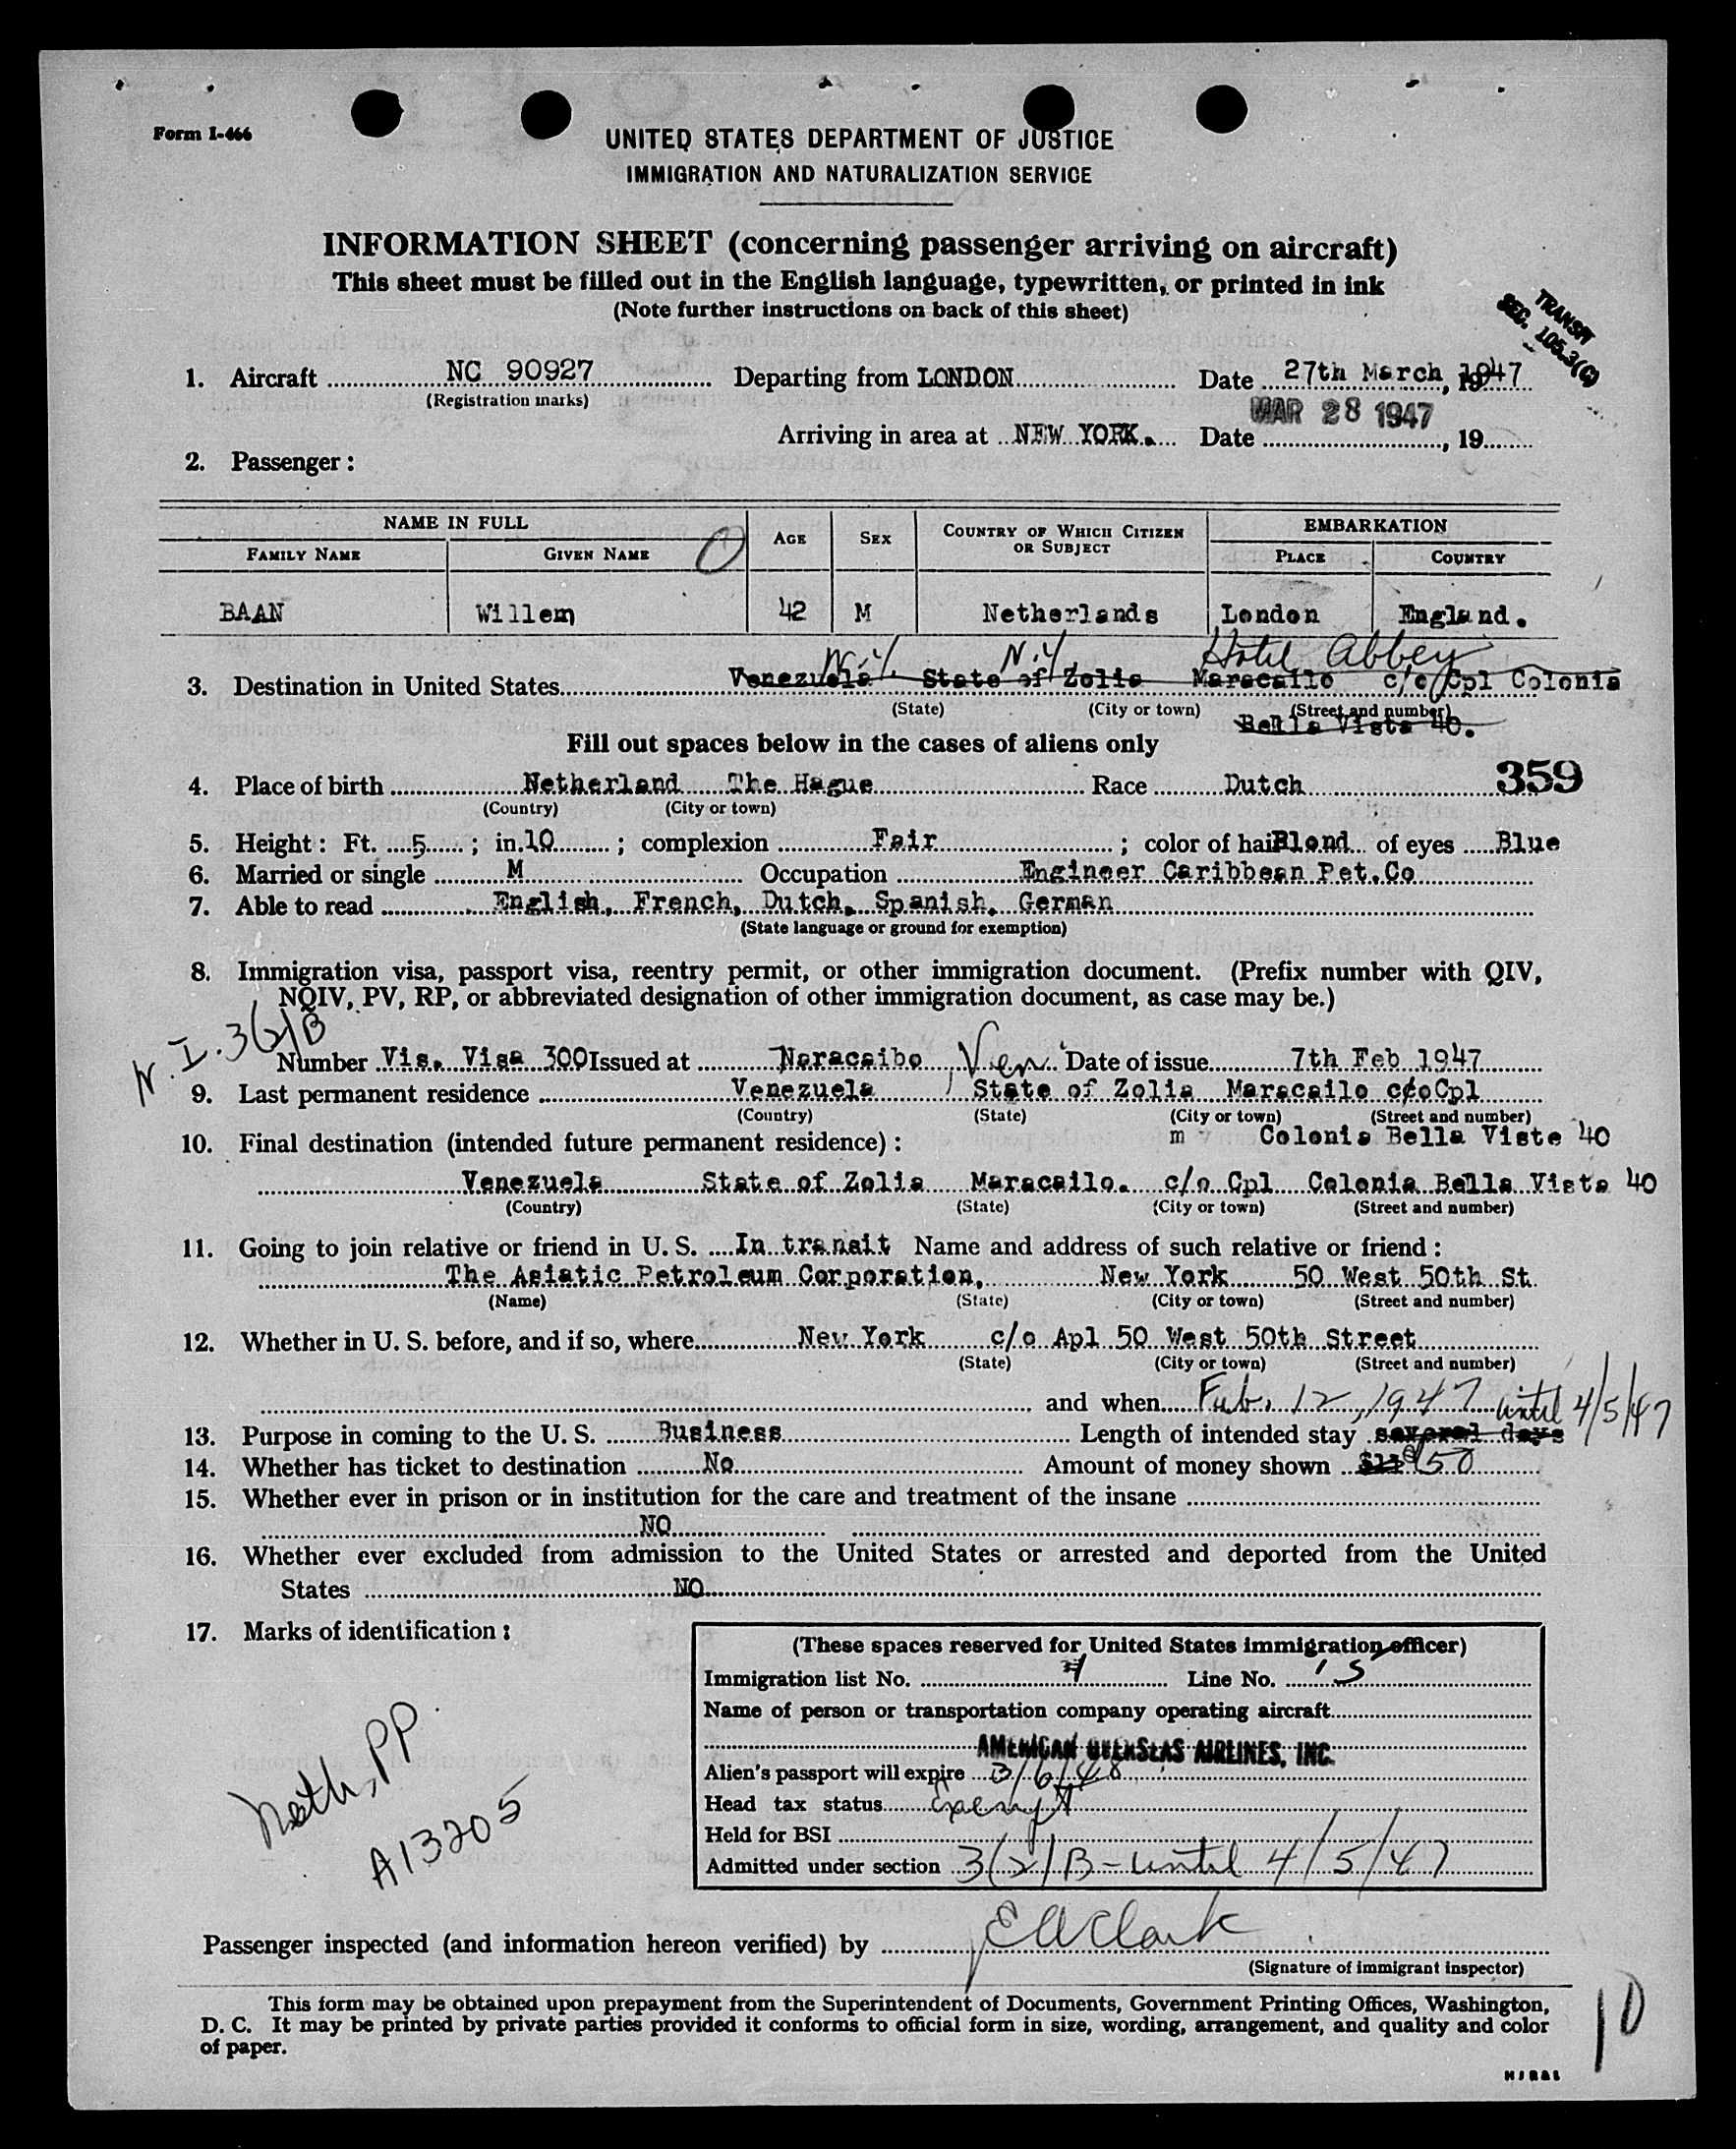 Form I-466
UNITED STATES DEPARTMENT OF JUSTICE
IMMIGRATION AND NATURALIZATION SERVICE
INFORMATION SHEET (concerning passenger arriving on aircraft)
This sheet must be filled out in the English language, typewritten, or printed in ink
(Note further instructions on back of this sheet)
TRANSIT
SEC. 105.3(C)
1. Aircraft NC 90927 Departing from LONDON Date 27th March, 1947
(Registration marks)
MAR 28 1947
Arriving in area at NEW YORK. Date , 19
2. Passenger:
NAME IN FULL AGE SEX COUNTRY OF WHICH CITIZEN OR SUBJECT EMBARKATION
FAMILY NAME GIVEN NAME PLACE COUNTRY
BAAN Willem 42 M Netherlands London England.
N.Y. N.Y Hotel Abbey
3. Destination in United States Venezuela State of Zolia Maracailo c/o Cpl Colonia
(State) (City or town) (Street and number)
Bella Vista 40.
Fill out spaces below in the cases of aliens only
359
4. Place of birth Netherland The Hague Race Dutch
(Country) (City or town)
5. Height: Ft. 5; in. 10; complexion Fair; color of hair Blond of eyes Blue
6. Married or single M Occupation Engineer Caribbean Pet.Co
7. Able to read English, French, Dutch, Spanish, German
(State language or ground for exemption)
8. Immigration visa, passport visa, reentry permit, or other immigration document. (Prefix number with QIV,
NQIV, PV, RP, or abbreviated designation of other immigration document, as case may be.)
N.I. 3(2)B
Number Vis. Visa 300 Issued at Naracaibo Ven. Date of issue 7th Feb 1947
9. Last permanent residence Venezuela State of Zolia Maracailo c/o Cpl
(Country) (State) (City or town) (Street and number)
m Colonia Bella Viste 40
10. Final destination (intended future permanent residence):
Venezuela State of Zolia Maracailo. c/o Cpl Colonia Bella Vista 40
(Country) (State) (City or town) (Street and number)
11. Going to join relative or friend in U. S. In transit Name and address of such relative or friend:
The Asiatic Petroleum Corporation, New York 50 West 50th St.
(Name) (State) (City or town) (Street and number)
12. Whether in U. S. before, and if so, where New York c/o Apl 50 West 50th Street
(State) (City or town) (Street and number)
and when Feb. 12, 1947
until 4/5/47
13. Purpose in coming to the U. S. Business Length of intended stay several days
14. Whether has ticket to destination No Amount of money shown 50
15. Whether ever in prison or in institution for the care and treatment of the insane
NO
16. Whether ever excluded from admission to the United States or arrested and deported from the United
States NO
17. Marks of identification:
Neth, PP
A13205
(These spaces reserved for United States immigration officer)
Immigration list No. Line No. 5
Name of person or transportation company operating aircraft
AMERICAN OVERSEAS AIRLINES, INC.
Alien's passport will expire 3/6/48
Head tax status Exempt
Held for BSI
Admitted under section 3(2)B - until 4/5/47
Passenger inspected (and information hereon verified) by E A Clark
(Signature of immigrant inspector)
This form may be obtained upon prepayment from the Superintendent of Documents, Government Printing Offices, Washington,
D. C. It may be printed by private parties provided it conforms to official form in size, wording, arrangement, and quality and color
of paper.
10